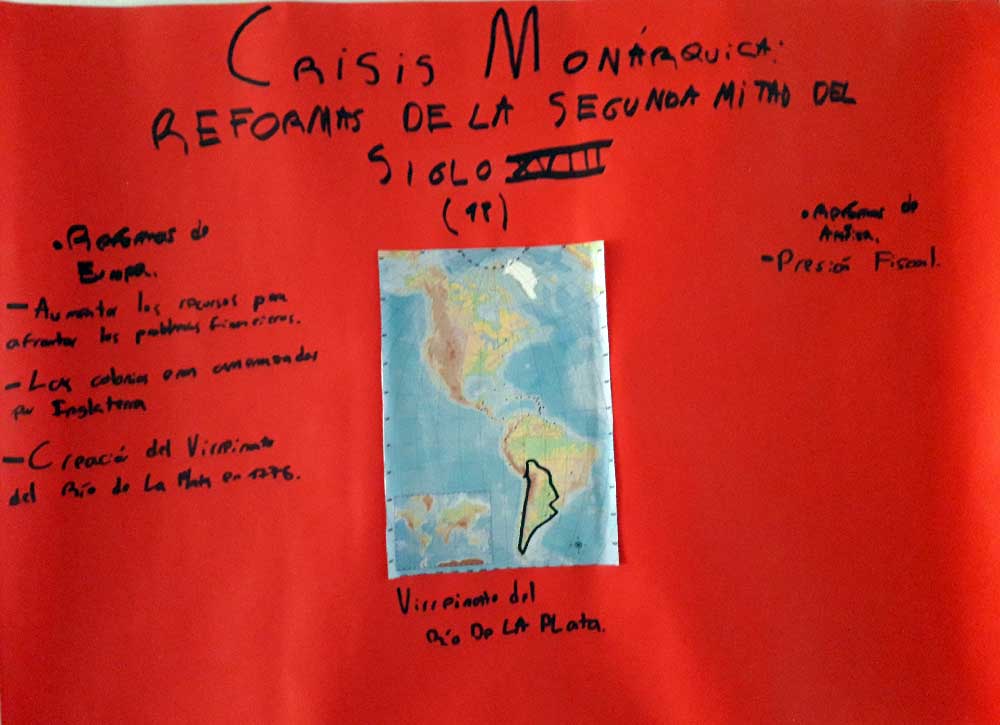 CRISIS MONÁRQUICA:
REFORMAS DE LA SEGUNDA MITAD DEL
SIGLO XVIII
(18)
• Reformas de
Europa.
- Aumentar los recursos para
afrontar los problemas financieros.
- Las colonias eran amenazadas
por Inglaterra
- Creación del Virreinato
del Río de La Plata en 1776.
• Reformas de
América.
- Presión Fiscal.
Virreinato del
Río De LA PLata.